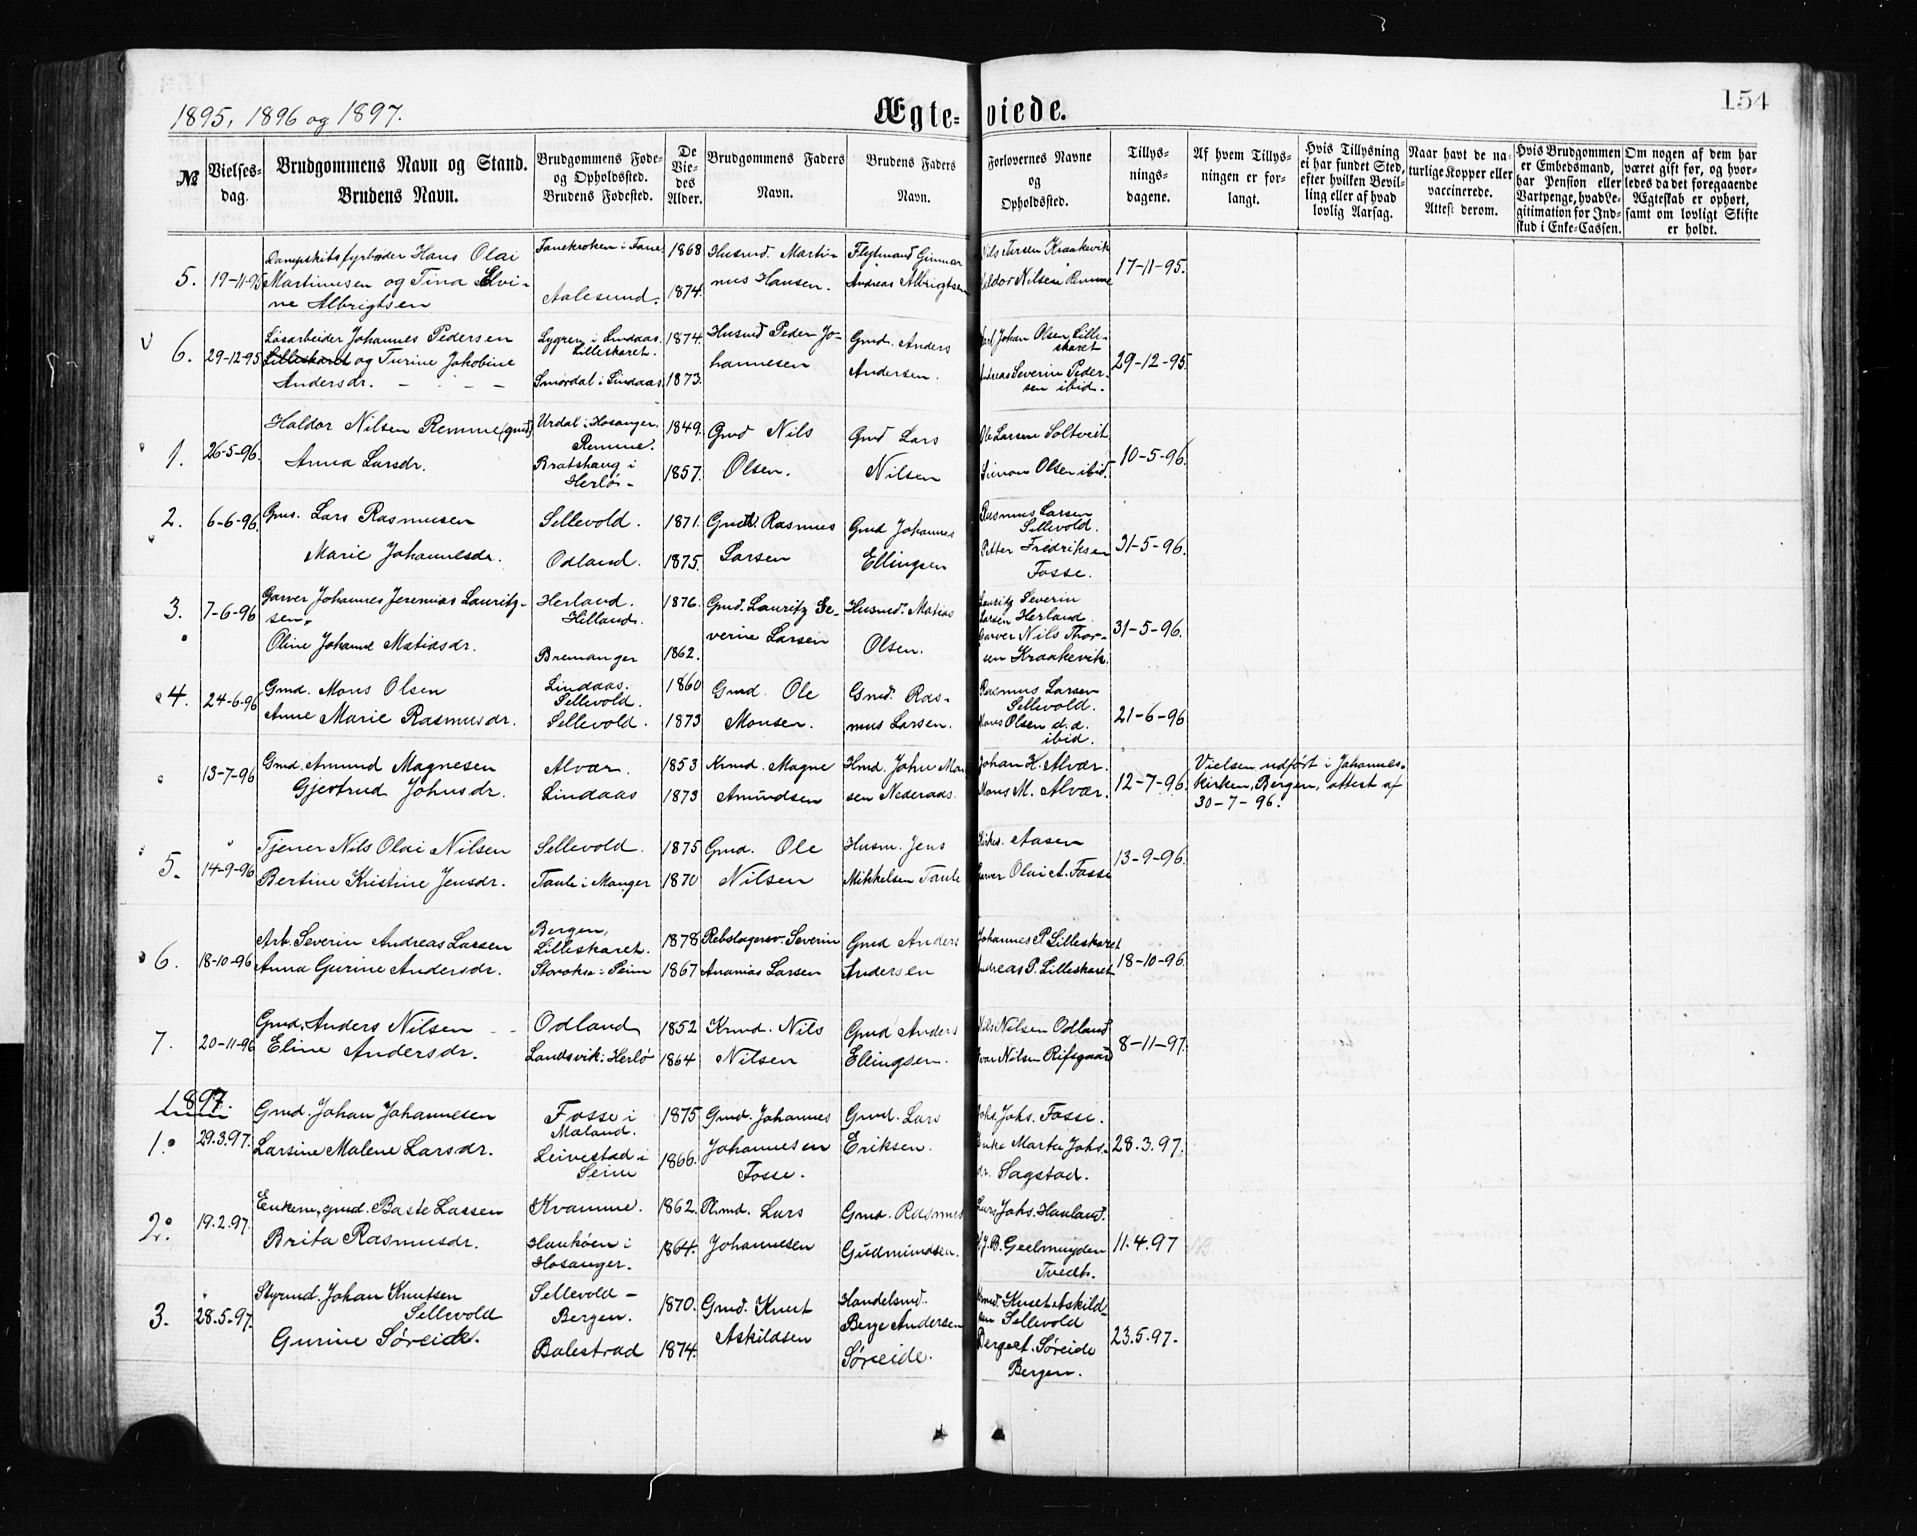 154
1895, 1896 og 1897.
Ægteviede.
№
Vielsesdag.
Brudgommens Navn og Stand.
Brudens Navn.
Brudgommens Føde- og Opholdssted.
Brudens Fødested.
De Viedes Alder.
Brudgommens Faders Navn.
Brudens Faders Navn.
Forlovernes Navne og Opholdssted.
Tillysningsdagene.
Af hvem Tillysningen er forlangt.
Hvis Tillysning ei har fundet Sted, efter hvilken Bevilling eller af hvad lovlig Aarsag.
Naar havt de naturlige Kopper eller vaccinerede. Attest derom.
Hvis Brudgommen er Embedsmand, har Pension eller Vartpenge, hvad Legitimation for Indskud i Enke-Cassen.
Om nogen af dem har været gift før, og hvorledes da det foregaaende Ægteskab er ophørt, samt om lovligt Skifte er holdt.
5. 19-11-95 Dampskibsfyrbøder Hans Olai
Martinusen og Tina Elvine Albrigtsen
Fanekroken i Fane
Aalesund.
1868
1874.
Husmd. Martinus Hansen.
Flytmand Gunnar
Andreas Albrigtsen
Nils Tursen Kraakevik
Haldor Nilsen Remme
17-11-95.
6. 29-12-95 Løsarbeider Johannes Pedersen
Lilleskaret og Turine Jakobine
Andersdr.
Lygren i Lindaas.
Lilleskaret.
Smørdal i Lindaas
1874
1873.
Husmd Peder Johannesen
Gmd. Anders
Andersen.
Karl Johan Olsen Lilleskaret
Andreas Severin Pedersen ibid.
29-12-95.
1. 26-5-96. Haldor Nilsen Remme (gmd)
Anna Larsdr.
Urdal i Hosanger.
Remme.
Bratshaug i
Herlø
1849.
1857.
Gmd Nils
Olsen.
Gmd Lars
Nilsen
Ole Larsen Soltveit
Simon Olsen ibid.
10-5-96.
2. 6-6-96. Gms. Lars Rasmusen
Marie Johannesdr.
Sellevold.
Odland.
1871.
1875.
Gmd. Rasmus
Larsen
Gmd Johannes
Ellingsen
Rasmus Larsen
Sellevold.
Petter Fredriksen
Fosse.
31-5-96.
3. 7-6-96 Garver Johannes Jeremias Lauritzsen.
Oline Johanne Matiasdr.
Herland.
Hilland.
Bremanger
1876.
1862.
Gmd. Lauritz Severine Larsen
Husmd. Matias
Olsen.
Lauritz Severin
Larsen Herland.
Garver Nils Thorsen Kraakevik.
31-5-96.
4. 24-6-96 Gmd. Mons Olsen
Anne Marie Rasmusdr.
Lindaas.
Sellevold.
Sellevold.
1860
1873
Gmd. Ole
Monsen.
Gmd. Rasmus Larsen.
Rasmus Larsen
Sellevold.
Mons Olsen d.a.
ibid.
21-6-96
13-7-96 Gmd. Amund Magnesen
Gjertrud Johnsdr.
Alvær.
Lindaas
1853
1873
Krmd. Magne
Amundsen
Hmd. John Monsen Nederaas.
Johan H. Alvær.
Mons M. Alvær.
12-7-96.
Vielsen udført i Johanneskirken, Bergen, attest af
30-7-96.
5. 14-9-96 Tjener Nils Olai Nilsen
Bertine Kristine Jensdr.
Sellevold.
Taule i Manger
1875
1870
Gmd. Ole
Nilsen
Husm. Jens
Mikkelsen Taule
Kirkes. Aasen
Garver Olai A. Fosse
13-9-96.
6. 18-10-96 Arb. Severin Andreas Larsen
Anna Gurine Andersdr.
Bergen,
Lilleskaret.
Storoksen i Seim
1878
1867
Rebslagersv. Severin
Ananias Larsen
Gmd Anders
Andersen
Johannes P. Lilleskaret
Andreas P. Lilleskaret
18-10-96.
7. 20-11-96 Gmd. Anders Nilsen
Eline Andersdr.
Odland
Landsvik i Herlø
1852
1864
Krmd. Nils
Nilsen
Gmd Anders
Ellingsen.
Nils Nilsen Odland
Ivar Nilsen Rifsgaard
8-11-97.
1897.
1. 29.3.97. Gmd. Johan Johannesen
Larsine Malene Larsdr.
Fosse i
Moland.
Leivestad i
Seim
1875
1866.
Gmd. Johannes
Johannesen
Fosse.
Gmd. Lars
Eriksen.
Johs. Johs. Fosse.
Enke Marta Johsdr. Sagstad.
28.3.97.
2. 19.2.97. Enkem, gmd. Baste Lassen
Brita Rasmusdr.
Kvamme.
Haukøen i
Hosanger.
1862.
1864.
Plmd. Lars
Johannesen
Gmd. Rasmus
Gudmundsen.
Lars Johs. Hauland.
B. Geelmuyden
Tvedt.
11.4.97
3. 28.5.97. Styrmd. Johan Knutsen
Sellevold
Gurine Søreide.
Sellevold -
Bergen.
Balestrad
1870.
1874.
Gmd. Knut
Askildsen
Handelsmd.
Berge Andersen
Søreide.
Knut Askildsen Sellevold
Berge A. Søreide
Bergen.
23.5.97.